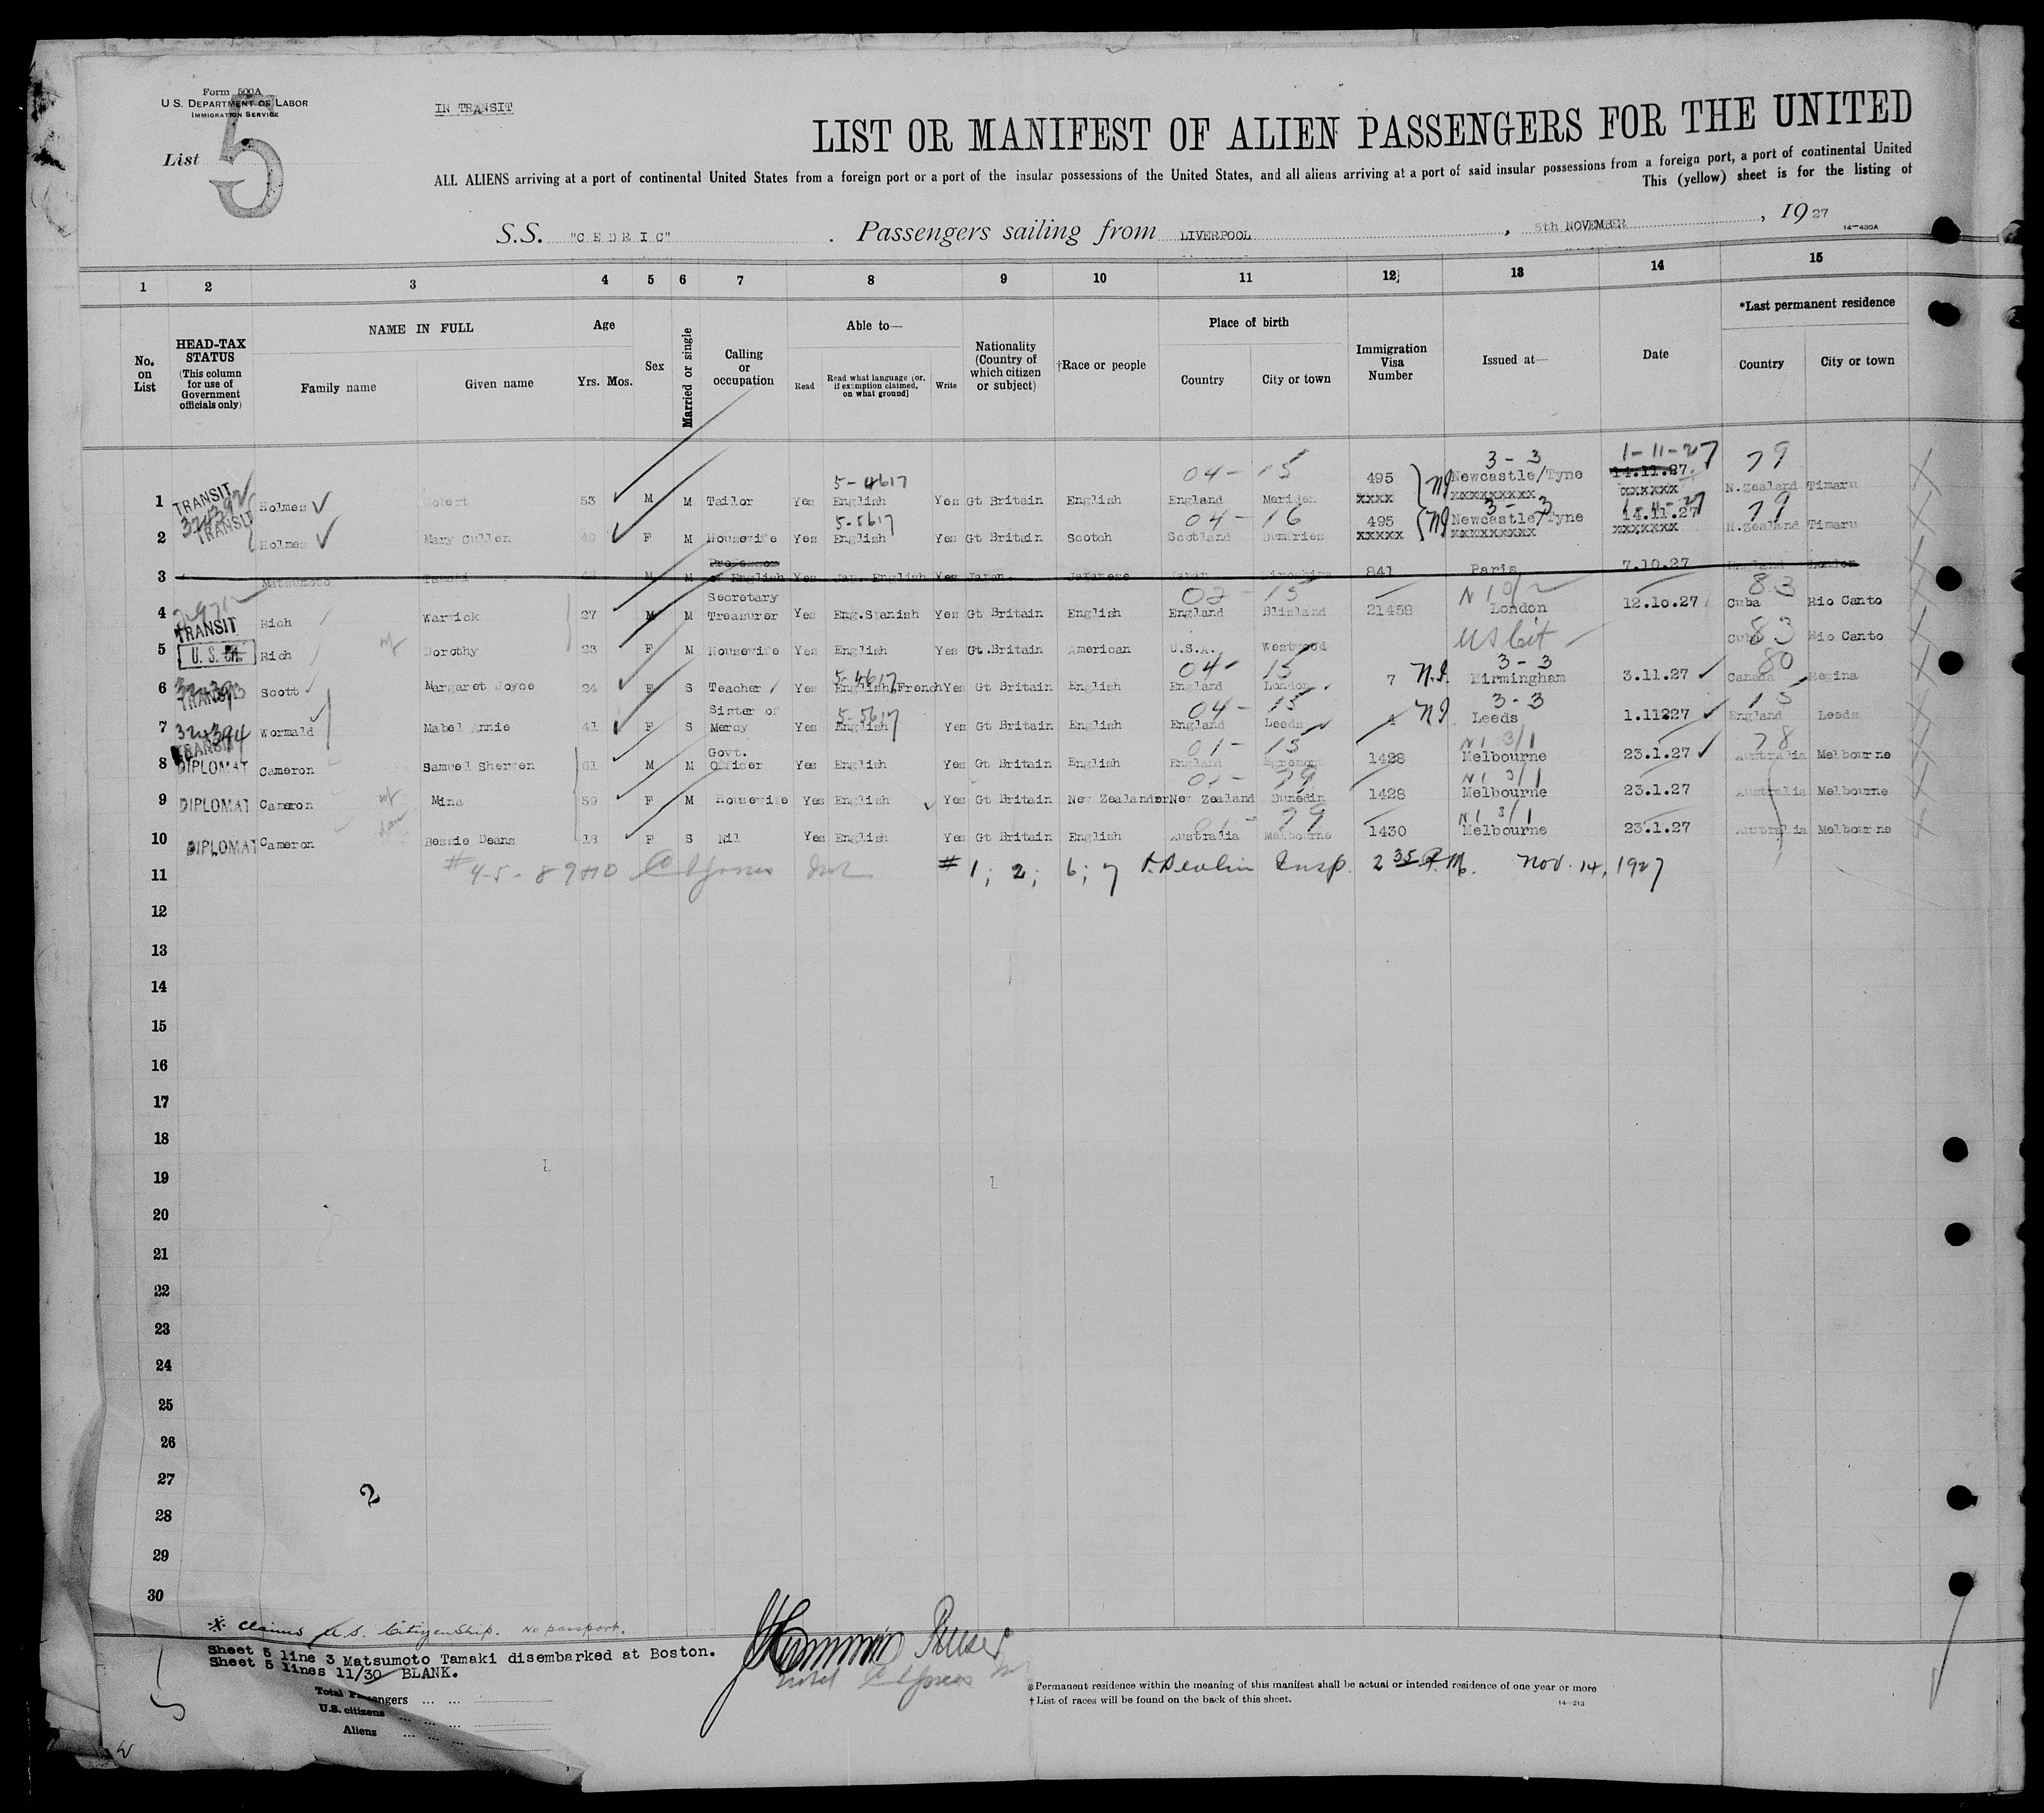 Form 500A
U.S. DEPARTMENT OF LABOR
IMMIGRATION SERVICE
IN TRANSIT
List 5
LIST OR MANIFEST OF ALIEN PASSENGERS FOR THE UNITED
ALL ALIENS arriving at a port of continental United States from a foreign port or a port of the insular possessions of the United States, and all aliens arriving at a port of said insular possessions from a foreign port, a port of continental United
This (yellow) sheet is for the listing of
S.S. "CEDRIC" . Passengers sailing from LIVERPOOL , 5th NOVEMBER , 1927
14-430A
1 2 3 4 5 6 7 8 9 10 11 12 13 14 15
No. on List
HEAD-TAX STATUS (This column for use of Government officials only)
NAME IN FULL Family name Given name
Age Yrs. Mos.
Sex
Married or single
Calling or occupation
Able to— Read Read what language [or, if exemption claimed, on what ground] Write
Nationality (Country of which citizen or subject)
†Race or people
Place of birth Country City or town
Immigration Visa Number
Issued at—
Date
*Last permanent residence Country City or town
5-4617 04-15 3-3 1-11-27 79
1 TRANSIT Holmes Robert 53 M M Tailor Yes English Yes Gt Britain English England Meriden 495 xxxx NI Newcastle/Tyne xxxxxxxxx 14.11.27 xxxxxx N.Zealand Timaru
32392
5-5617 04-16 3-3 79
2 TRANSIT Holmes Mary Cullen 49 F M Housewife Yes English Yes Gt Britain Scotch Scotland Dumfries 495 xxxxx NI Newcastle/Tyne xxxxxxxxx 14.11.27 xxxxxxx N.Zealand Timaru
3 Matsumoto Tamaki M M Professor of English Yes Jap. English Yes Japan Japanese Japan Hiroshima 841 Paris 7.10.27 England London
02-15 83
4 TRANSIT Rich Warrick 27 M M Secretary Treasurer Yes Eng.Spanish Yes Gt Britain English England Blisland 21458 London 12.10.27 Cuba Rio Canto
US Cit 83
5 U.S. Rich wf Dorothy 23 F M Housewife Yes English Yes Gt.Britain American U.S.A. Westwood Cuba Rio Canto
5-4617 04-15 3-3 80
6 TRANSIT Scott Margaret Joyce 24 F S Teacher Yes English,French Yes Gt Britain English England London 7 N.I. Birmingham 3.11.27 Canada Regina
5-5617 04-15 3-3 15
7 32394 TRANSIT Wormald Mabel Annie 41 F S Sister of Mercy Yes English Yes Gt Britain English England Leeds 4 NI Leeds 1.11227 England Leeds
01-15 NI 3/1 78
8 DIPLOMAT Cameron Samuel Sherwen 61 M M Govt. Officer Yes English Yes Gt Britain English England Egremont 1428 Melbourne 23.1.27 Australia Melbourne
79 NI 3/1
9 DIPLOMAT Cameron wf Mina 59 F M Housewife Yes English Yes Gt Britain New Zealander New Zealand Dunedin 1428 Melbourne 23.1.27 Australia Melbourne
79 NI 3/1
10 DIPLOMAT Cameron dau Bessie Deans 18 F S Nil Yes English Yes Gt Britain English Australia Melbourne 1430 Melbourne 23.1.27 Australia Melbourne
11 #4-5-8 9+10 # 1; 2; 6; 7 Devlin Insp. 2 35 P.M. Nov. 14, 1927
12
13
14
15
16
17
18
19
20
21
22
23
24
25
26
27
2
28
29
30
* Claims U.S. Citizenship. No passport.
Sheet 5 line 3 Matsumoto Tamaki disembarked at Boston.
Sheet 5 lines 11/30 BLANK.
Purser
Total Passengers ... ...
U.S. citizens ... ... ...
Aliens ... ... ...
*Permanent residence within the meaning of this manifest shall be actual or intended residence of one year or more
†List of races will be found on the back of this sheet.
14-213